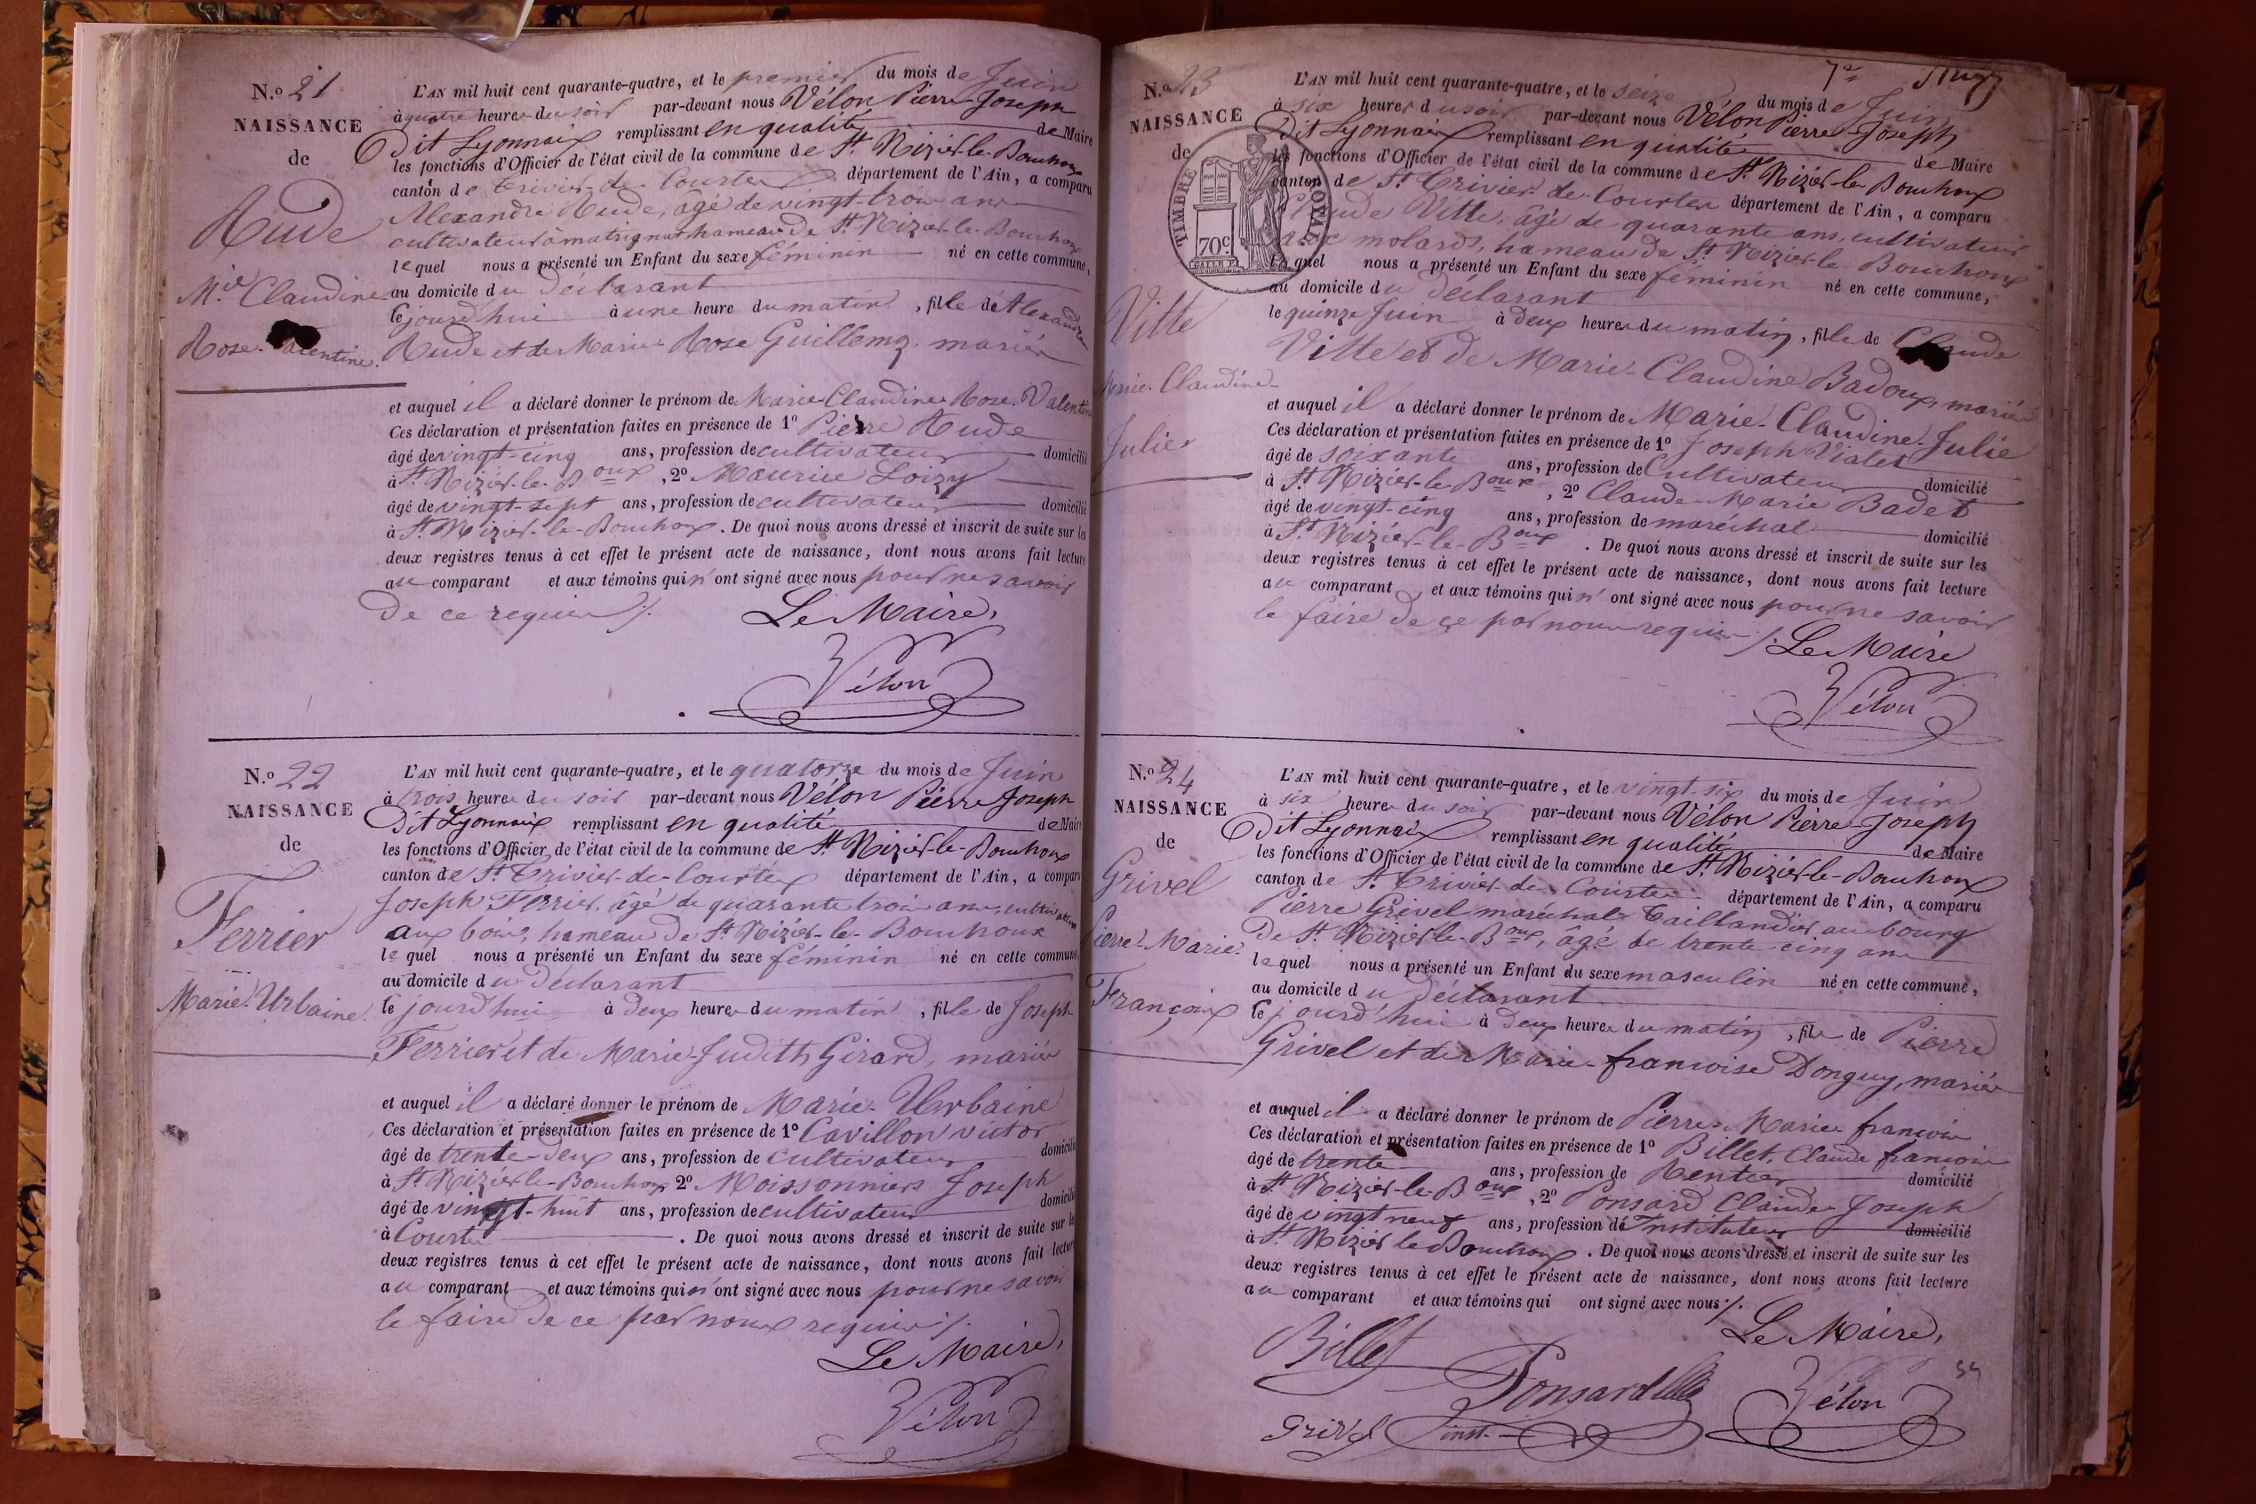 N.º 21
NAISSANCE
de
Rude
M.ie Claudine
Rose. Valentine.
L'AN mil huit cent quarante-quatre, et le premier du mois de Juin
à quatre heures du soir par-devant nous Vélon Pierre Joseph
Dit Lyonnais remplissant en qualité de Maire
les fonctions d'Officier de l'état civil de la commune de St. Nizier-le-Bouchoux
canton de St. Trivier-de-Courtes département de l'Ain, a comparu
Alexandre Rude, âgé de vingt-trois ans
cultivateur à matrignat hameau de St. Nizier-le-Bouchoux
lequel nous a présenté un Enfant du sexe féminin né en cette commune,
au domicile du Déclarant
le jourd'hui à une heure du matin, fille de Alexandre
Rude et de Marie Rose Guillemz mariés
et auquel il a déclaré donner le prénom de Marie-Claudine Rose Valentine
Ces déclaration et présentation faites en présence de 1º Pierre Rude
âgé de vingt-cinq ans, profession de cultivateur domicilié
à St. Nizier-le-Boux, 2º Maurice Loizy
âgé de vingt-sept ans, profession de cultivateur domicilié
à St. Nizier-le-Bouchoux. De quoi nous avons dressé et inscrit de suite sur les
deux registres tenus à cet effet le présent acte de naissance, dont nous avons fait lecture
au comparant et aux témoins qui n'ont signé avec nous pour ne savoir
De ce requis /.
Le Maire,
Vélon
N.º 22
NAISSANCE
de
Ferrier
Marie. Urbaine.
L'AN mil huit cent quarante-quatre, et le quatorze du mois de Juin
à trois heures du soir par-devant nous Vélon Pierre Joseph
Dit Lyonnais remplissant en qualité de Maire
les fonctions d'Officier de l'état civil de la commune de St. Nizier-le-Bouchoux
canton de St. Trivier-de-Courtes département de l'Ain, a comparu
Joseph Ferrier, âgé de quarante trois ans, cultivateur
aux bois, hameau de St. Nizier-le-Bouchoux
lequel nous a présenté un Enfant du sexe féminin né en cette commune,
au domicile du Déclarant
le jourd'hui à deux heures du matin, fille de Joseph
Ferrier et de Marie-Judith Girard, mariés
et auquel il a déclaré donner le prénom de Marie-Urbaine
Ces déclaration et présentation faites en présence de 1º Cavillon victor
âgé de trente-deux ans, profession de cultivateur domicilié
à St. Nizier-le-Bouchoux 2º Moissonnier Joseph
âgé de vingt-huit ans, profession de cultivateur domicilié
à Courtes. De quoi nous avons dressé et inscrit de suite sur les
deux registres tenus à cet effet le présent acte de naissance, dont nous avons fait lecture
au comparant et aux témoins qui n'ont signé avec nous pour ne savoir
le faire de ce par nous requis /.
Le Maire,
Vélon
7e
N.º 23
NAISSANCE
de
TIMBRE ROYAL
70c.
Ville
Marie. Claudine
Julie
L'AN mil huit cent quarante-quatre, et le seize du mois de Juin
à six heures du soir par-devant nous Vélon Pierre Joseph
Dit Lyonnais remplissant en qualité de Maire
les fonctions d'Officier de l'état civil de la commune de St. Nizier-le-Bouchoux
canton de St. Trivier de-Courtes département de l'Ain, a comparu
Claude Ville, âgé de quarante ans, cultivateur
aux molards, hameau de St. Nizier-le Bouchoux
lequel nous a présenté un Enfant du sexe féminin né en cette commune,
au domicile du Déclarant
le quinze Juin à deux heures du matin, fille de Claude
Ville et de Marie Claudine Badoux, mariés
et auquel il a déclaré donner le prénom de Marie-Claudine Julie
Ces déclaration et présentation faites en présence de 1º Joseph Vialet
âgé de soixante ans, profession de Cultivateur domicilié
à St. Nizier-le-Boux, 2º Claude-Marie Badet
âgé de vingt-cinq ans, profession de maréchal domicilié
à St. Nizier-le-Boux. De quoi nous avons dressé et inscrit de suite sur les
deux registres tenus à cet effet le présent acte de naissance, dont nous avons fait lecture
au comparant et aux témoins qui n'ont signé avec nous pour ne savoir
le faire de ce par nous requis /.
Le Maire
Vélon
N.º 24
NAISSANCE
de
Grivel
Pierre-Marie
François
L'AN mil huit cent quarante-quatre, et le vingt-six du mois de Juin
à six heures du soir par-devant nous Vélon Pierre Joseph
Dit Lyonnais remplissant en qualité de Maire
les fonctions d'Officier de l'état civil de la commune de St. Nizier-le-Bouchoux
canton de St. Trivier de Courtes département de l'Ain, a comparu
Pierre Grivel maréchal Taillandier au bourg
de St. Nizier-le-Boux, âgé de trente-cinq ans
lequel nous a présenté un Enfant du sexe masculin né en cette commune,
au domicile du Déclarant
le jourd'hui à deux heures du matin, fils de Pierre
Grivel et de Marie-francoise Donguy, mariés
et auquel il a déclaré donner le prénom de Pierre-Marie francois
Ces déclaration et présentation faites en présence de 1º Billet, Claude francois
âgé de trente ans, profession de Rentier domicilié
à St. Nizier-le Boux, 2º Ponsard Claude Joseph
âgé de vingt neuf ans, profession de Instituteur domicilié
à St. Nizier le Bouchoux. De quoi nous avons dressé et inscrit de suite sur les
deux registres tenus à cet effet le présent acte de naissance, dont nous avons fait lecture
au comparant et aux témoins qui ont signé avec nous /.
Le Maire,
Billet
Ponsard
Vélon
Grivel
inst.